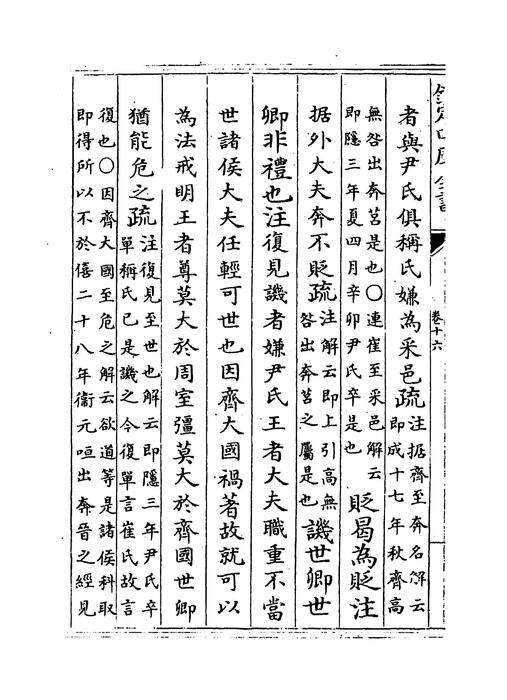 欽定四庫全書
卷十六
者與尹氏俱稱氏嫌為采邑疏
注据齊至奔名解云
即成十七年秋齊高
無咎出奔莒是也○連崔至采邑解云
即隱三年夏四月辛卯尹氏卒是也
貶曷為貶注
据外大夫奔不貶疏
注解云即上引高無
咎出奔莒之屬是也
譏世卿世
卿非禮也注復見譏者嫌尹氏王者大夫職重不當
世諸侯大夫任輕可世也因齊大國禍著故就可以
為法戒明王者尊莫大於周室彊莫大於齊國世卿
猶能危之疏
注復見至世也解云即隱三年尹氏卒
單稱氏已是譏之今復單言崔氏故言
復也○因齊大國至危之解云欲道等是諸侯科取
即得所以不於僖二十八年衞元咺出奔晉之經見